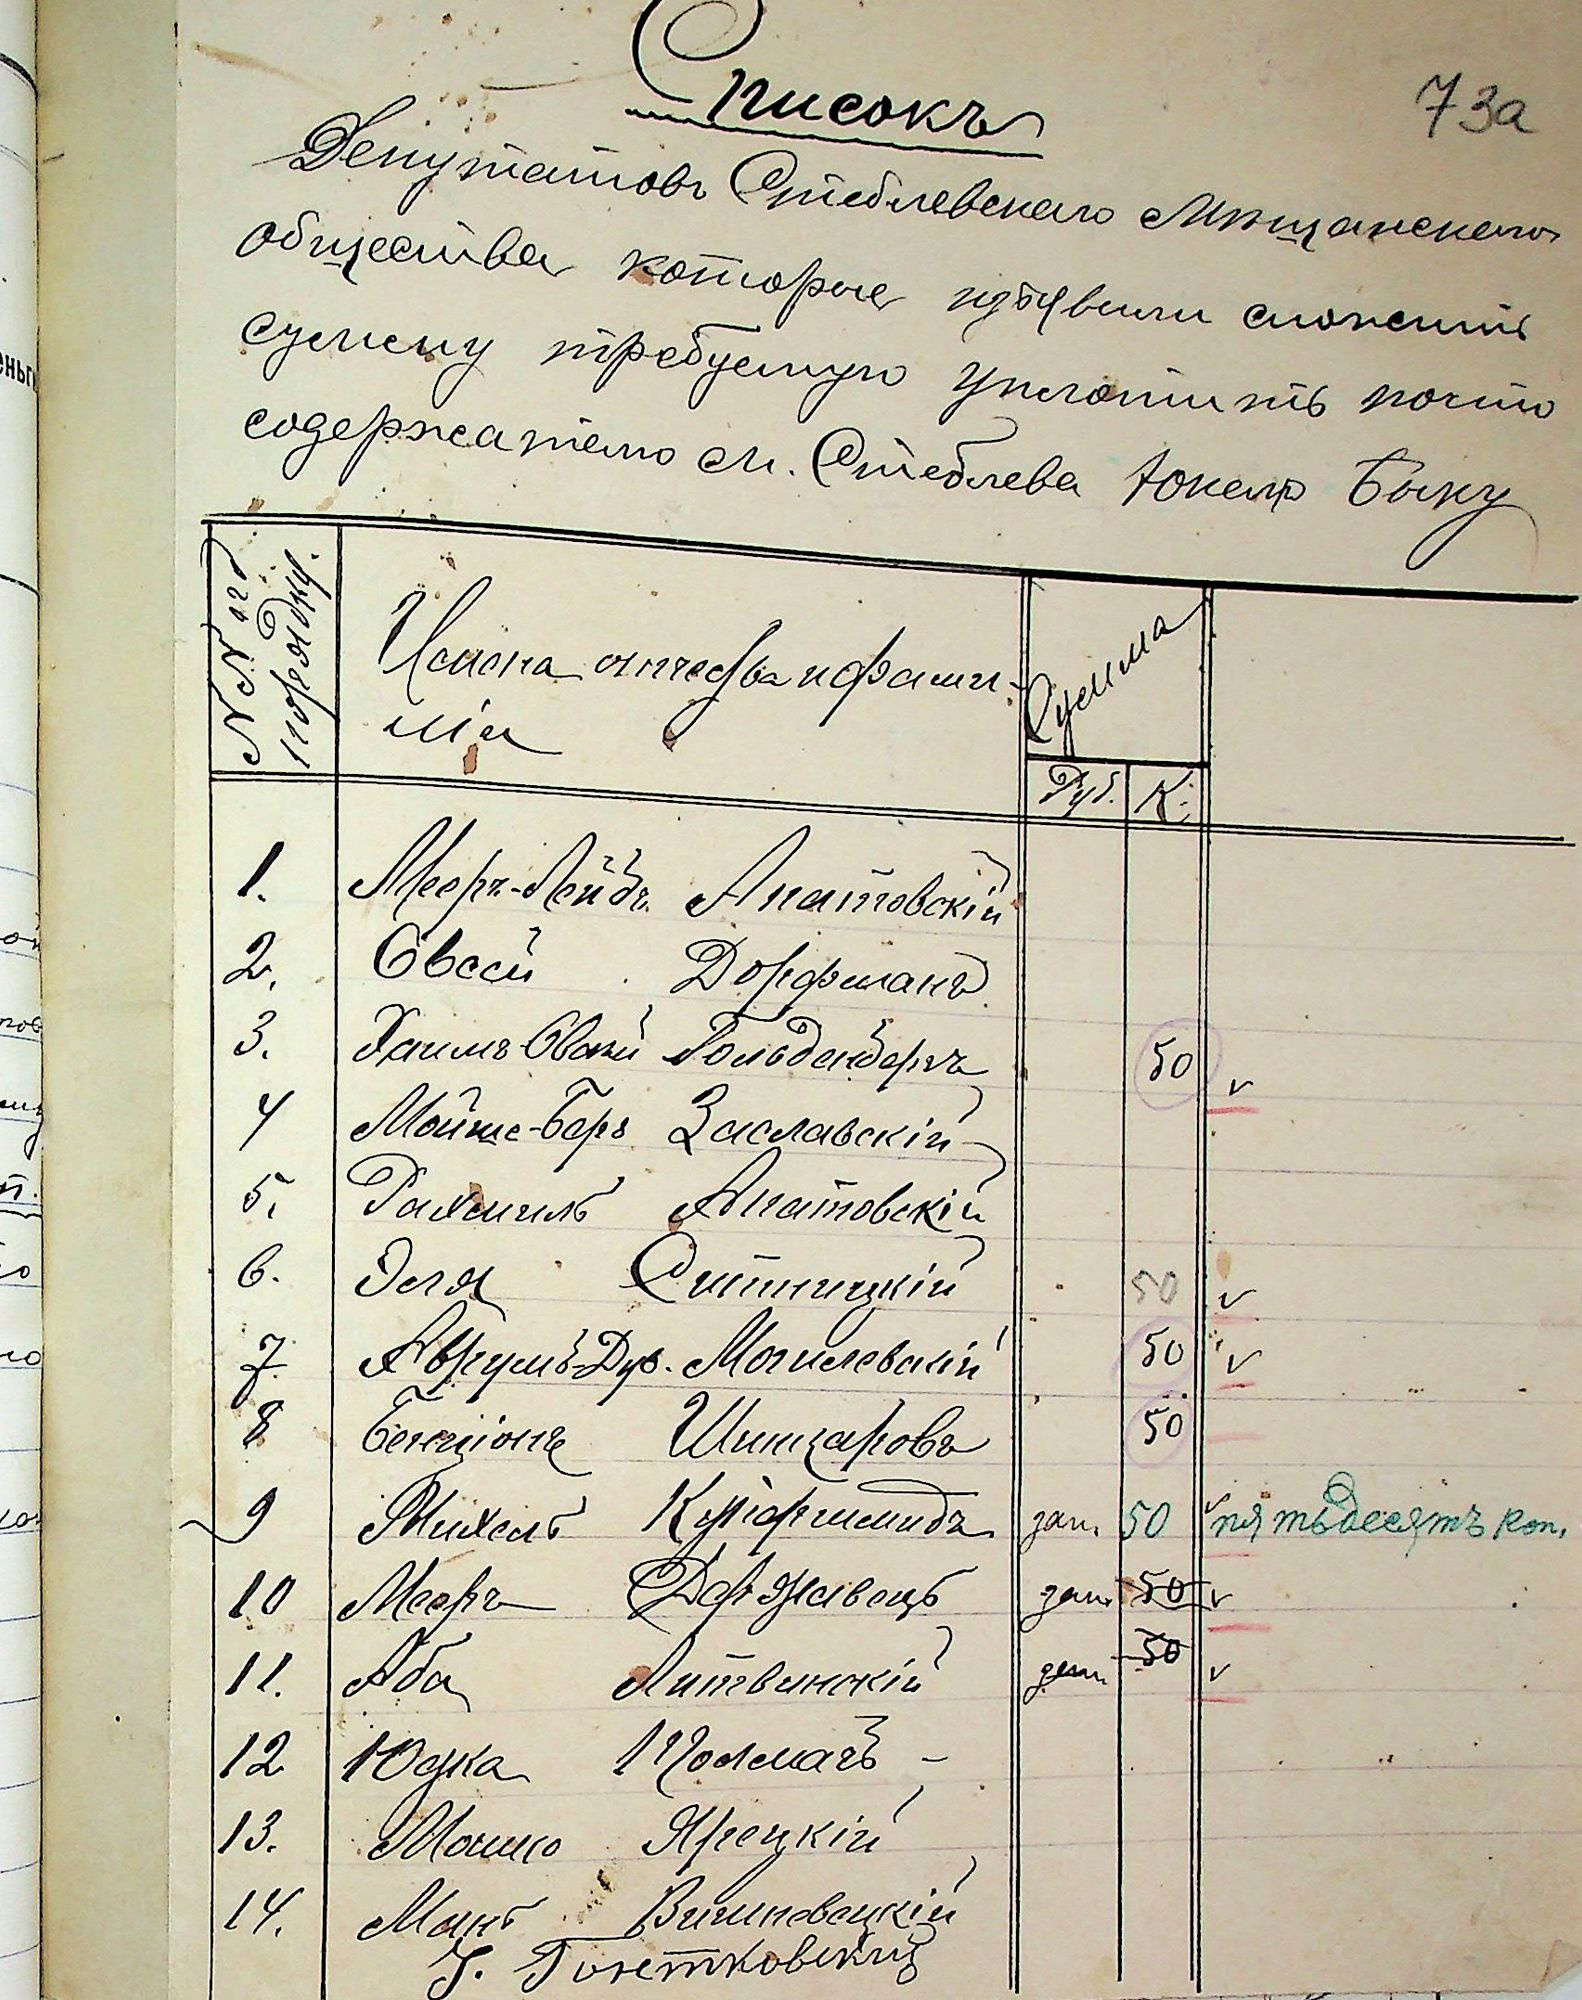 73а
Списокъ
Депутатовъ Стеблевскаго Мѣщанскаго
общества которые изъявили сложить
сумму требуемую уплотить почто
содержателю м. Стеблева Юкелю Быку
№№ по порядку.
Имена отчества и фами-
ліи
Сумма
Руб. К.
1. Мееръ-Лейбъ Апатовскій
2. Овсей Дорфманъ
3. Хаимъ-Овсей Гольденбергъ 50 v
4 Мойше-Беръ Заславскій
5. Рахмиль Апатовскій
6. Эля Ситницкій 50 v
7. Аврумъ-Дув. Могилевскій 50 v
8 Бенціонъ Шинкаровъ 50
9 Михель Купфершмидъ зап. 50 v пятьдесятъ коп.
10 Мееръ Державецъ зап. 50 v
11. Аба Литвинскій зап. 50 v
12 Юдка Толмачъ -
13. Мошко Ярецкій
14. Вишневецкій